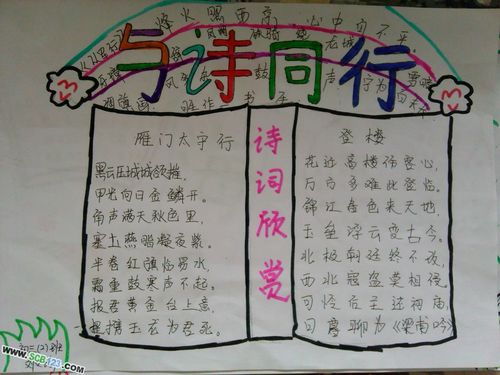 烽火照西京 心中自不平。
铁骑绕龙城
与诗同行
诗词欣赏
雁门太守行
黑云压城城欲摧,
甲光向日金鳞开。
角声满天秋色里,
塞上燕脂凝夜紫。
半卷红旗临易水,
霜重鼓寒声不起。
报君黄金台上意,
提携玉龙为君死。
登楼
花近高楼伤客心,
万方多难此登临。
锦江春色来天地,
玉垒浮云变古今。
北极朝廷终不改,
西北寇盗莫相侵。
可怜后主还祠庙
日暮聊为《梁甫吟》
初二(2)班
www.SCB123.com